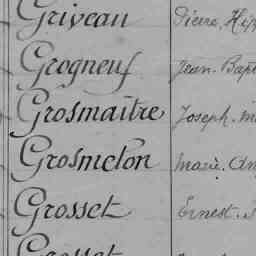 Griveau Pierre, Hip
Grogneuf Jean. Bap
Grosmaitre Joseph. M
Grosmelon Marie. An
Grosset Ernest.
Grosset